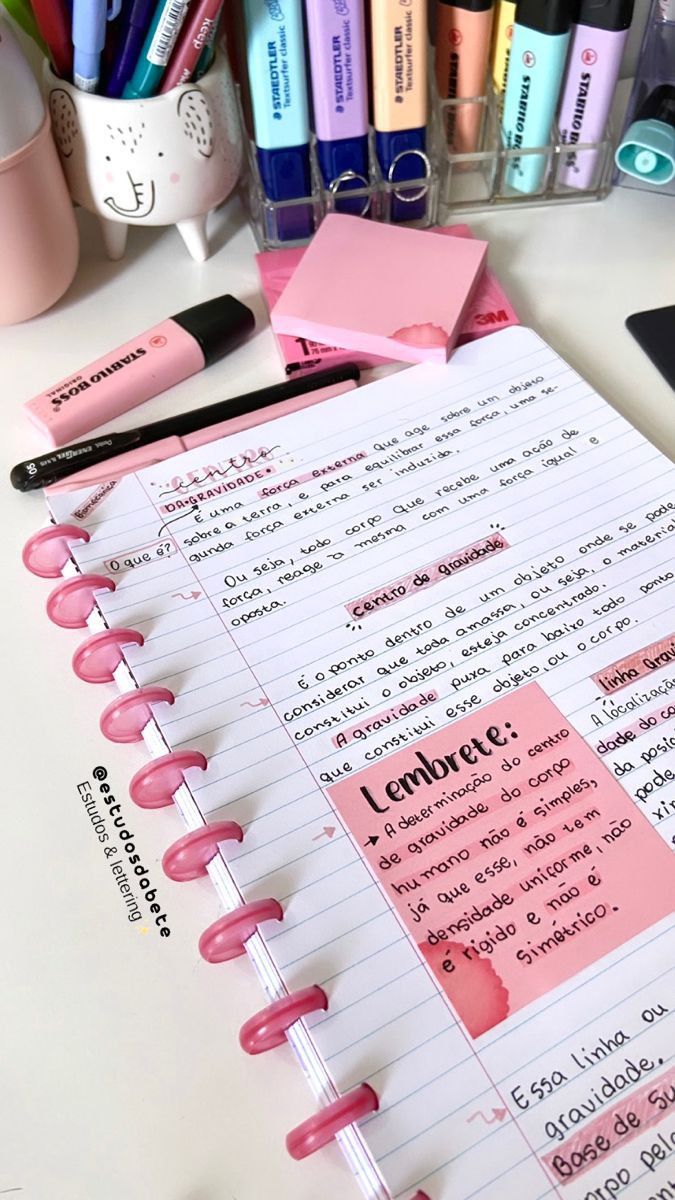 Keep
STAEDTLER
Textsurfer classic
STAEDTLER
Textsurfer classic
STAEDTLER
Textsurfer classic
STABILO BOSS
STABILO BOSS
STABILO BOSS
3M
STABILO BOSS
ORIGINAL
Pentel ENERGEL
Biomecânica
centro
CENTRO
DA•GRAVIDADE•
O que é?
É uma força externa que age sobre um objeto
sobre a terra, e para equilibrar essa força, uma se-
gunda força externa ser induzida.
Ou seja, todo corpo que recebe uma ação de
força, reage à mesma com uma força igual e
oposta.
centro de gravidade
É o ponto dentro de um objeto onde se pode
considerar que toda amassa, ou seja, o material
constitui o objeto, esteja concentrado.
A gravidade puxa para baixo todo ponto
que constitui esse objeto, ou o corpo.
Lembrete:
→ A determinação do centro
de gravidade do corpo
humano não é simples,
já que esse, não tem
densidade uniforme, não
é rígido e não é
simétrico.
linha Gravi
A localização
dade do co
da posiç
pode
xir
Essa linha ou
gravidade.
Base de Su
corpo pelo
@estudosdabete
Estudos & lettering✨